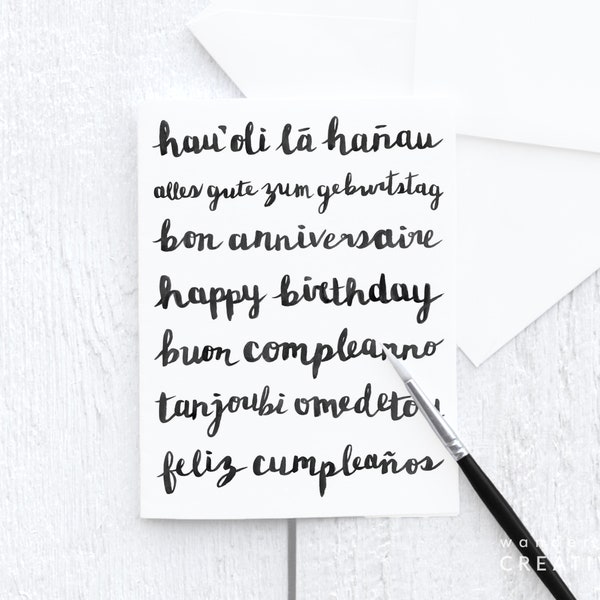 hau'oli lā hañau
alles gute zum geburtstag
bon anniversaire
happy birthday
buon compleanno
tanjoubi omedetou
feliz cumpleaños